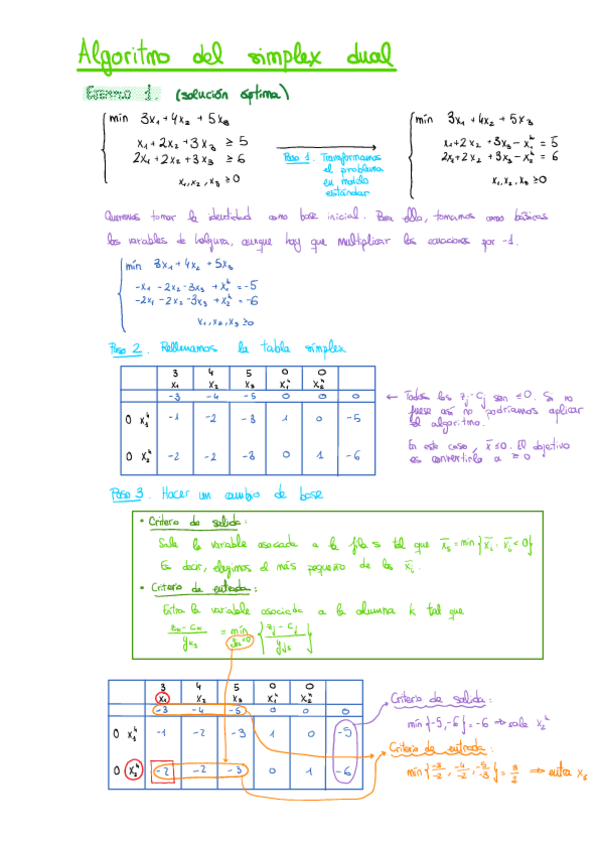 Algoritmo del simplex dual
EJEMPLO 1. (solución óptima)
min 3x₁ + 4x₂ + 5x₃
x₁ + 2x₂ + 3x₃ ≥ 5
2x₁ + 2x₂ + 3x₃ ≥ 6
x₁, x₂, x₃ ≥ 0
Paso 1. Transformamos
el problema
en modelo
estándar
min 3x₁ + 4x₂ + 5x₃
x₁ + 2x₂ + 3x₃ - x₁ʰ = 5
2x₁ + 2x₂ + 3x₃ - x₂ʰ = 6
x₁, x₂, x₃ ≥ 0
Queremos tomar la identidad como base inicial. Para ello, tomamos como básicas
las variables de holgura, aunque hay que multiplicar las ecuaciones por -1.
min 3x₁ + 4x₂ + 5x₃
-x₁ - 2x₂ - 3x₃ + x₁ʰ = -5
-2x₁ - 2x₂ - 3x₃ + x₂ʰ = -6
x₁, x₂, x₃ ≥ 0
Paso 2. Rellenamos la tabla simplex
3 4 5 0 0
x₁ x₂ x₃ x₁ʰ x₂ʰ
-3 -4 -5 0 0 0
0 x₁ʰ -1 -2 -3 1 0 -5
0 x₂ʰ -2 -2 -3 0 1 -6
← Todos los zⱼ - cⱼ son ≤ 0. Si no
fuese así no podríamos aplicar
el algoritmo.
En este caso, x̄ ≤ 0. El objetivo
es convertirlo a ≥ 0
Paso 3. Hacer un cambio de base
• Criterio de salida:
Sale la variable asociada a la fila s tal que x̄ₛ = min { x̄ᵢ, x̄ᵢ < 0 }
Es decir, elegimos el más pequeño de los x̄ᵢ.
• Criterio de entrada:
Entra la variable asociada a la columna k tal que
(zₖ - cₖ)/yₖₛ = min { (zⱼ - cⱼ)/yⱼₛ }
3 4 5 0 0
x₁ x₂ x₃ x₁ʰ x₂ʰ
-3 -4 -5 0 0 0
0 x₁ʰ -1 -2 -3 1 0 -5
0 x₂ʰ -2 -2 -3 0 1 -6
Criterio de salida:
min {-5, -6} = -6 ⇒ sale x₂ʰ
Criterio de entrada:
min { -3/-2, -4/-2, -5/-3 } = 3/2 ⇒ entra x₁